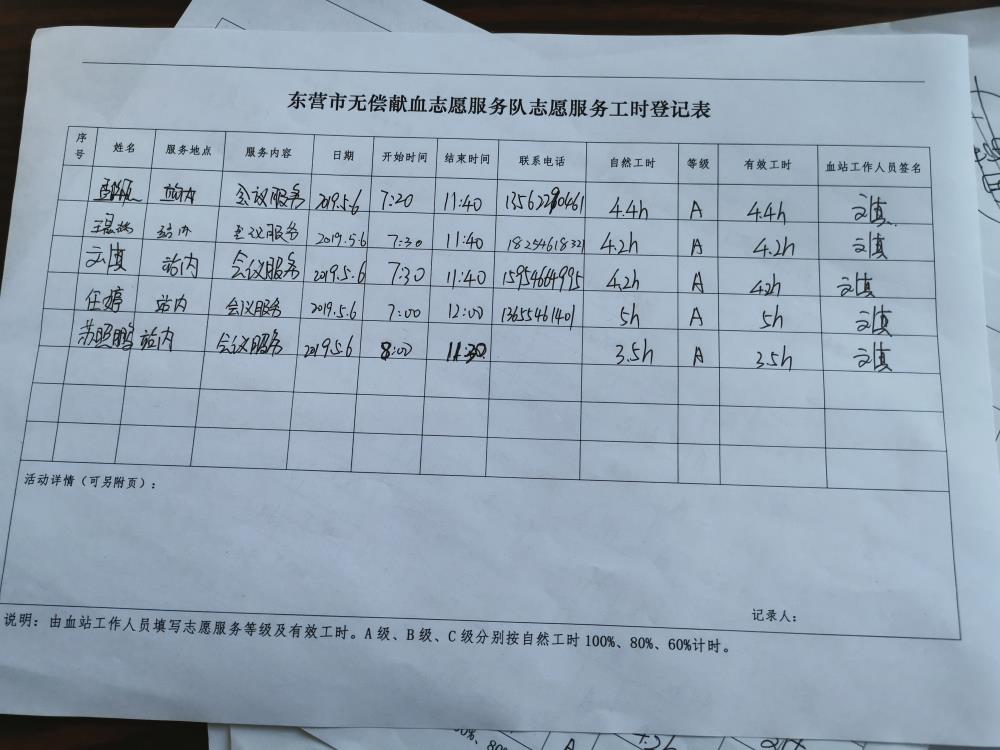 东营市无偿献血志愿服务队志愿服务工时登记表
序号 姓名 服务地点 服务内容 日期 开始时间 结束时间 联系电话 自然工时 等级 有效工时 血站工作人员签名
站内 会议服务 2019.5.6 7:20 11:40 4.4h A 4.4h
站内 会议服务 2019.5.6 7:30 11:40 18254618321 4.2h A 4.2h
站内 会议服务 2019.5.6 7:30 11:40 15954664995 4.2h A 4.2h
任婷 站内 会议服务 2019.5.6 7:00 12:00 13655461401 5h A 5h
苏照鹏 站内 会议服务 2019.5.6 8:00 11:30 3.5h A 3.5h
活动详情（可另附页）：
记录人：
说明：由血站工作人员填写志愿服务等级及有效工时。A级、B级、C级分别按自然工时100%、80%、60%计时。